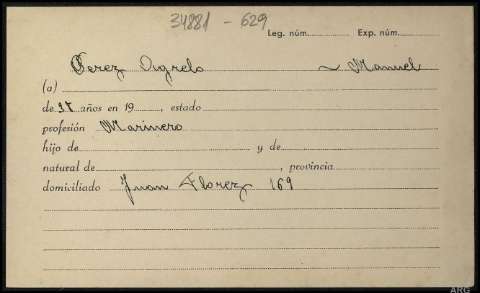 34881 - 629
Leg. núm. Exp. núm.
Perez Agrelo ~ Manuel
(a)
de 37 años en 19 , estado
profesión Marinero
hijo de y de
natural de , provincia
domiciliado Juan Florez 169
ARG